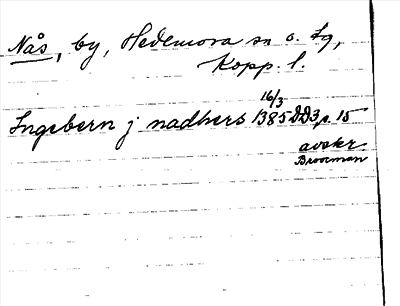 Nås, by, Hedemora sn o. lg,
Kopp. l.
16/3
Ingebern j nadhers 1385 DD3 p. 15
avskr
Broocman